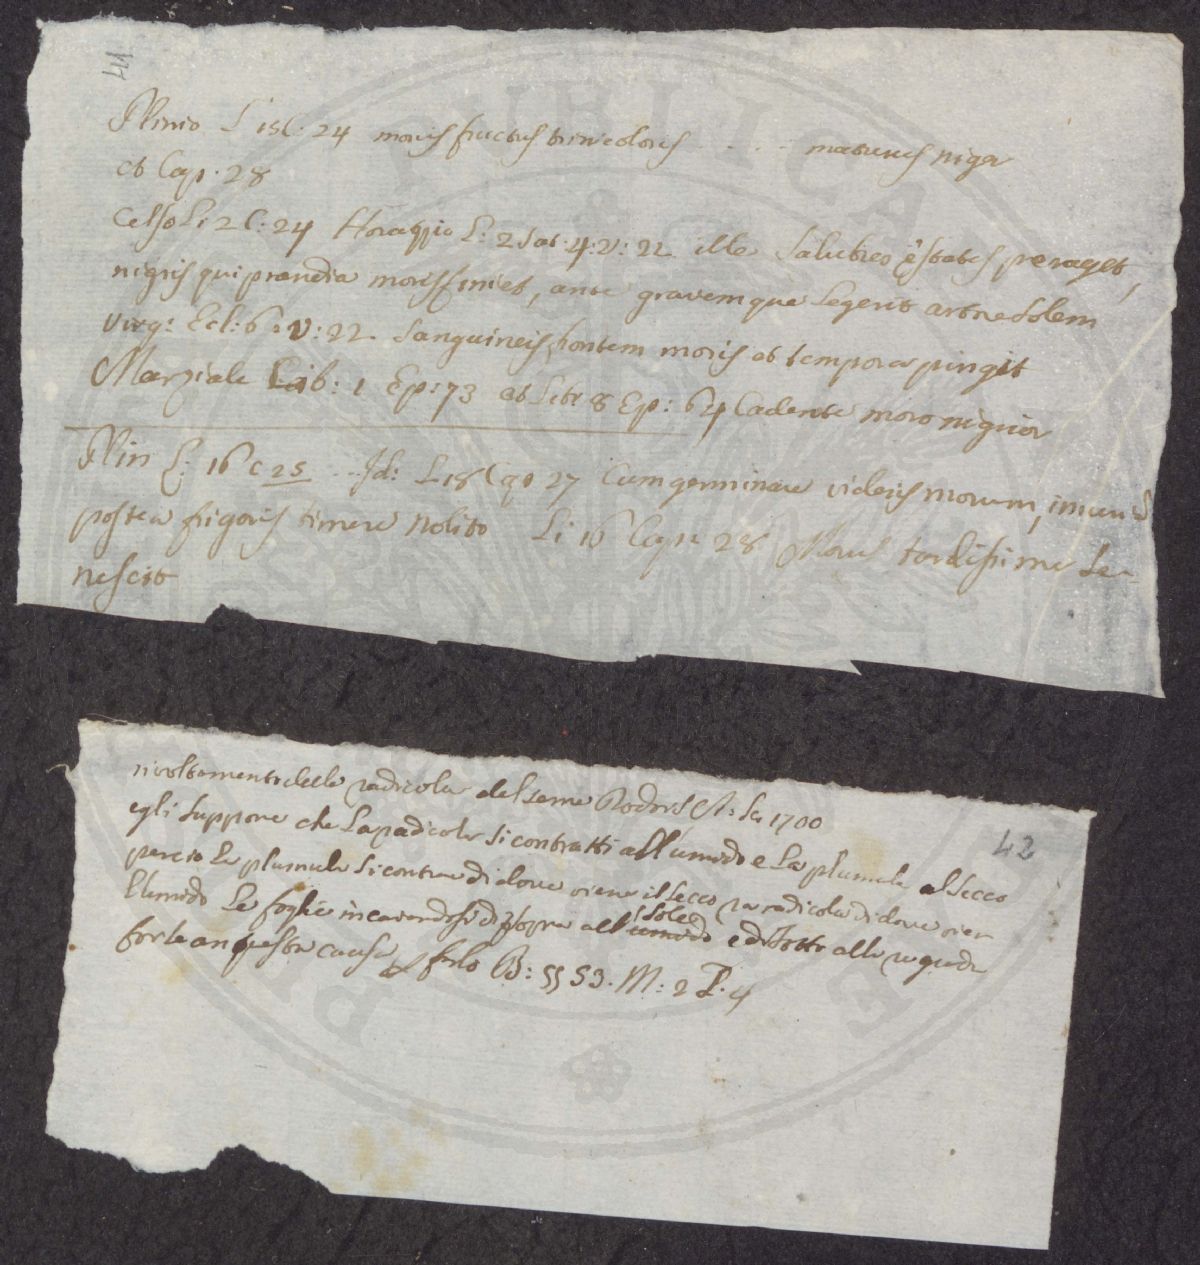 41
Plinio L 15 C: 24 morus fructus trini coloris . . . . maturus niger
et Cap. 28
Celso Li 2 C: 24 Horazzio L: 2 Sat: 4: V: 22 ille Salubres estates peraget,
nigris qui prandia moris finiet, ante gravem que Legerit arbore Solem
Virg: Ecl: 6: V: 22 Sanguineis frontem moris et tempora pingit
Marziale Lib: 1 Ep: 73 et Libr 8 Ep: 64 Cadente moro nigrior
Plin L: 16 C 25 ... Id: L 18 Cap 27 Cum germinare videris morum, iniuriā
postea frigoris timere nolito Li 16 Cap: 28 Morus tardissime se-
nescit
42
rivoltamento della radicola del seme Dodart A: Sc 1700
egli suppone che La radicola si contratti all umido e La plumula al Secco
percio La plumula si contrae di dove viene il Secco La radicola di dove vien
l'umido Le foglie incavandosi di sopra all umido Sole e di Sotto alla rugiada
forse an questa causa B: 55 53. M: 2 P. 4